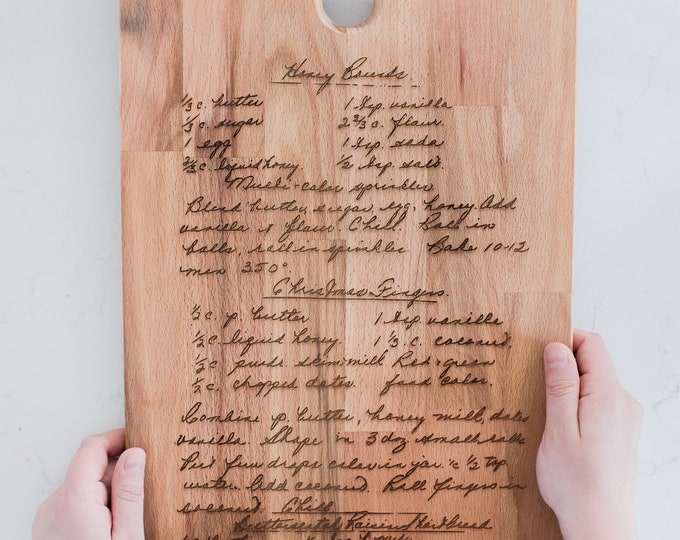 Honey Rounds
⅓ c. butter 1 tsp vanilla
⅓ c. sugar 2 ⅔ c. flour.
1 egg 1 tsp soda
⅔ c. liquid honey ½ tsp salt.
Multi-color sprinkles
Blend butter, sugar, egg, honey. Add
vanilla & flour. Chill. Roll in
balls, roll in sprinkles Bake 10-12
min 350°.
Christmas Fingers.
½ c p. butter 1 tsp vanilla
½ c. liquid honey. 1 ⅓ c. coconut
½ c powd. skim-milk Red & green
½ c. chopped dates. food color.
Combine p. butter, honey milk, dates
vanilla. Shape in 3 doz small balls
Put few drops color in jar ½ tsp
water. Add coconut. Roll fingers in
coconut. Chill
Butterscotch Raisin